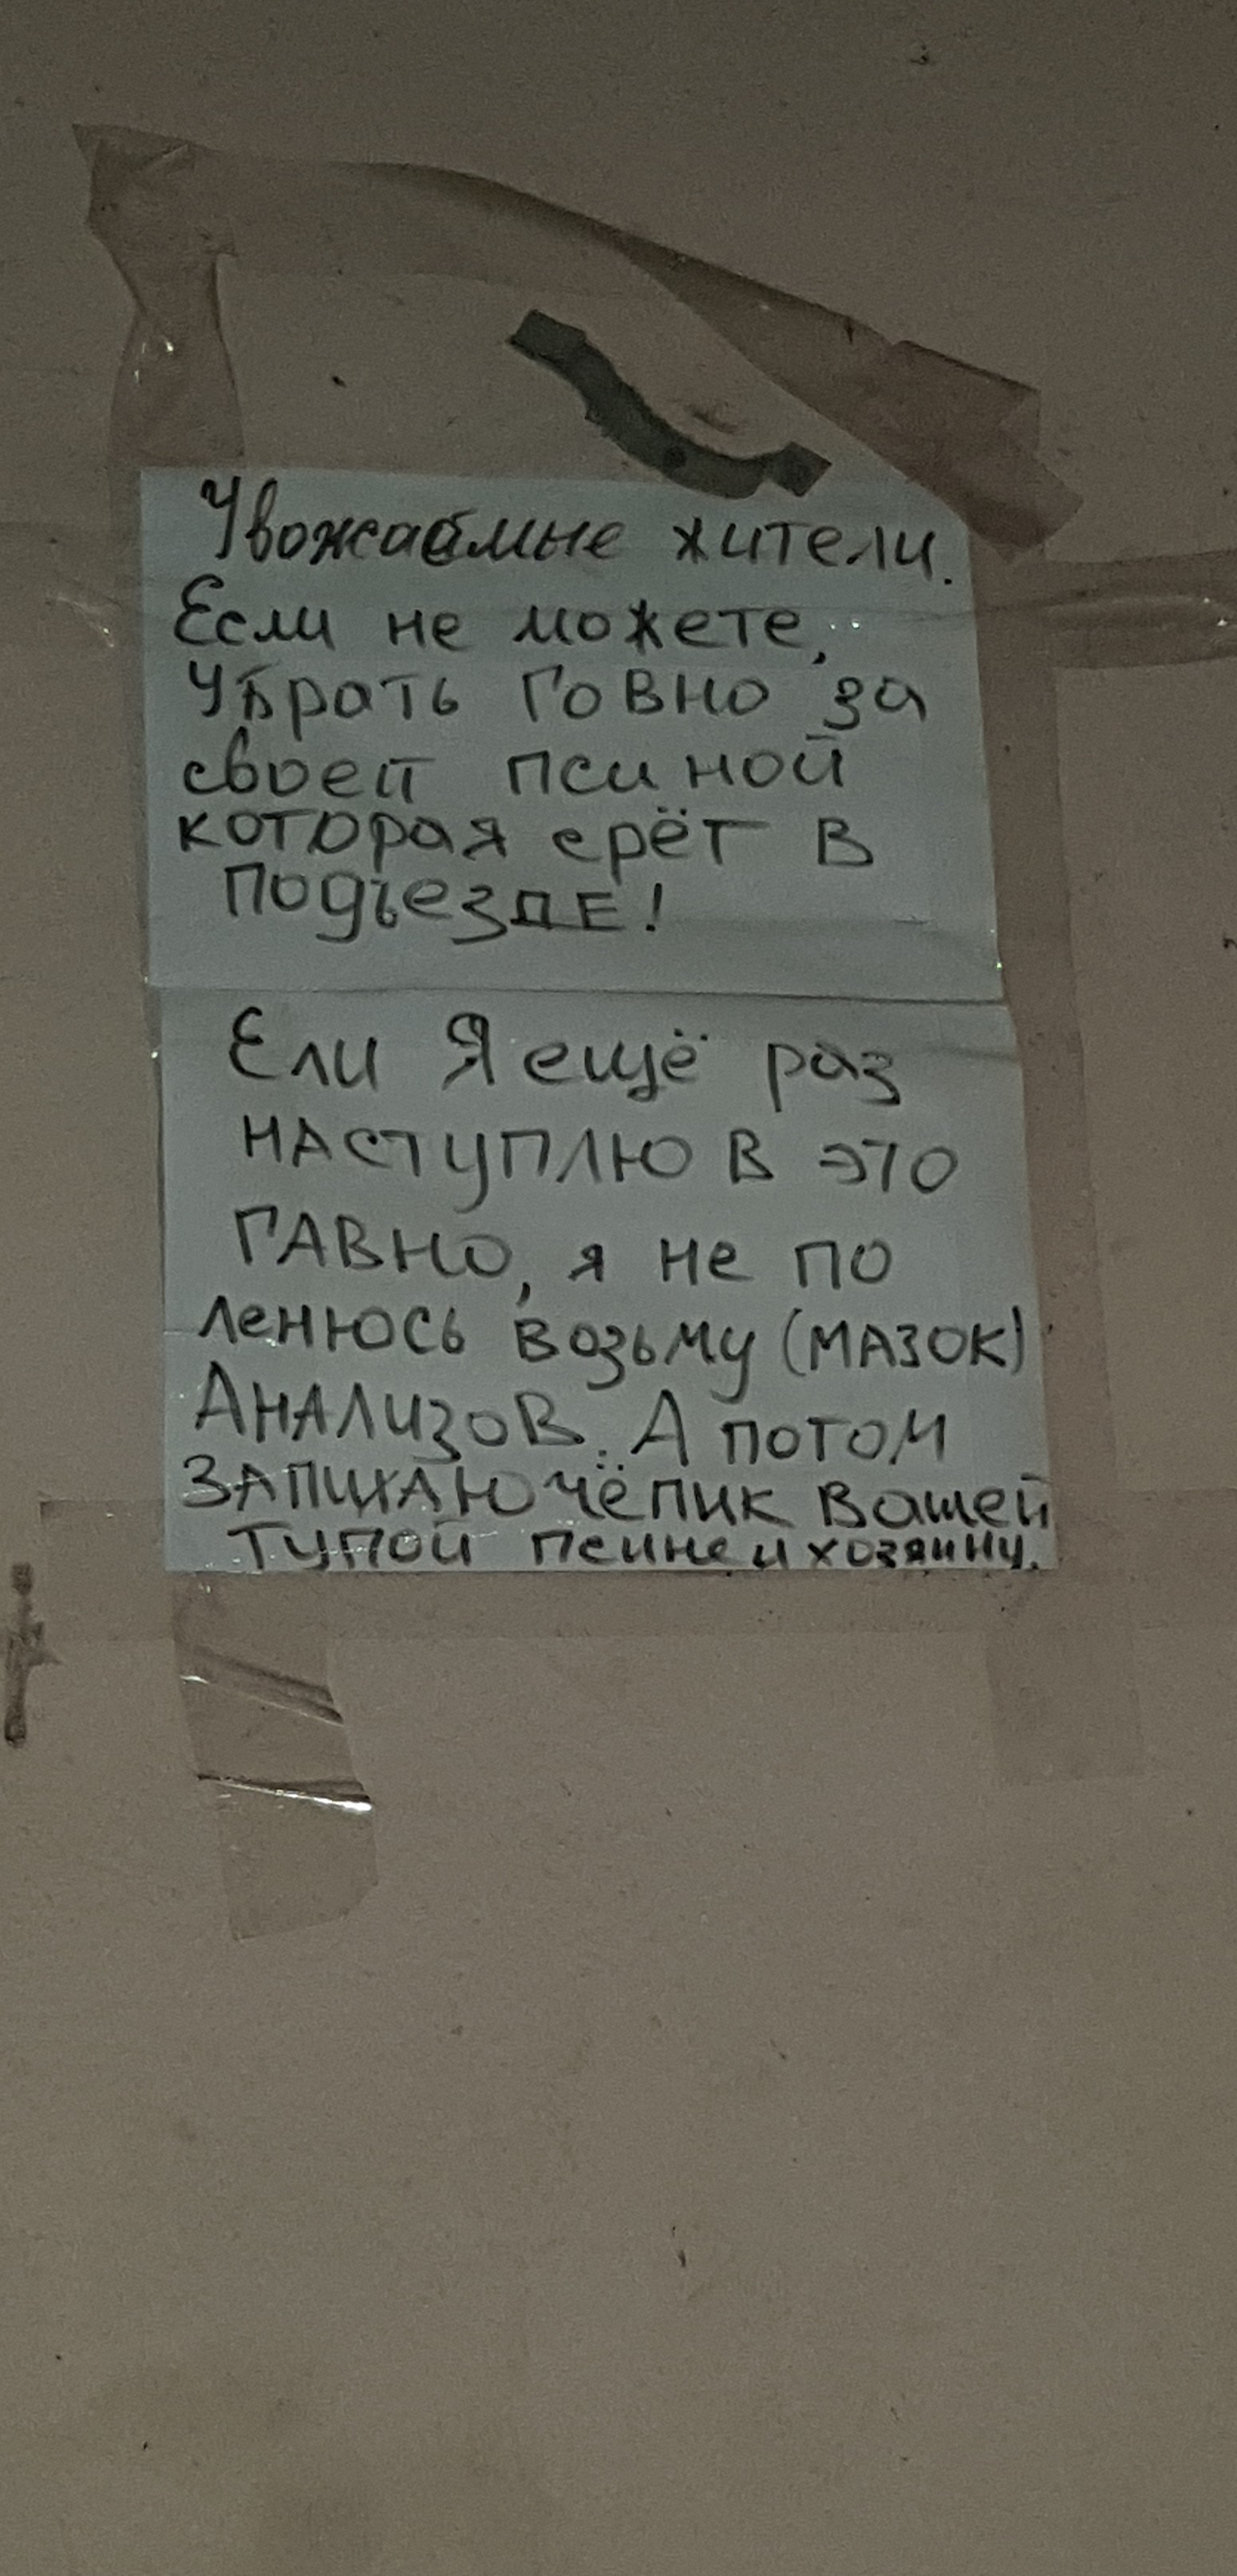 Увожаемые жители.
Если не можете,
Убрать Говно за
своей псиной
которая срёт В
подъезДЕ!
Ели Я ещё раз
НАСТУПЛЮ В ЭТО
ГАВНО, я не по
ленюсь возьму (МАЗОК)
АНАЛИЗОВ. А потом
ЗАПИХАЮ чёпик Вашей
Тупой псине и хозяину.